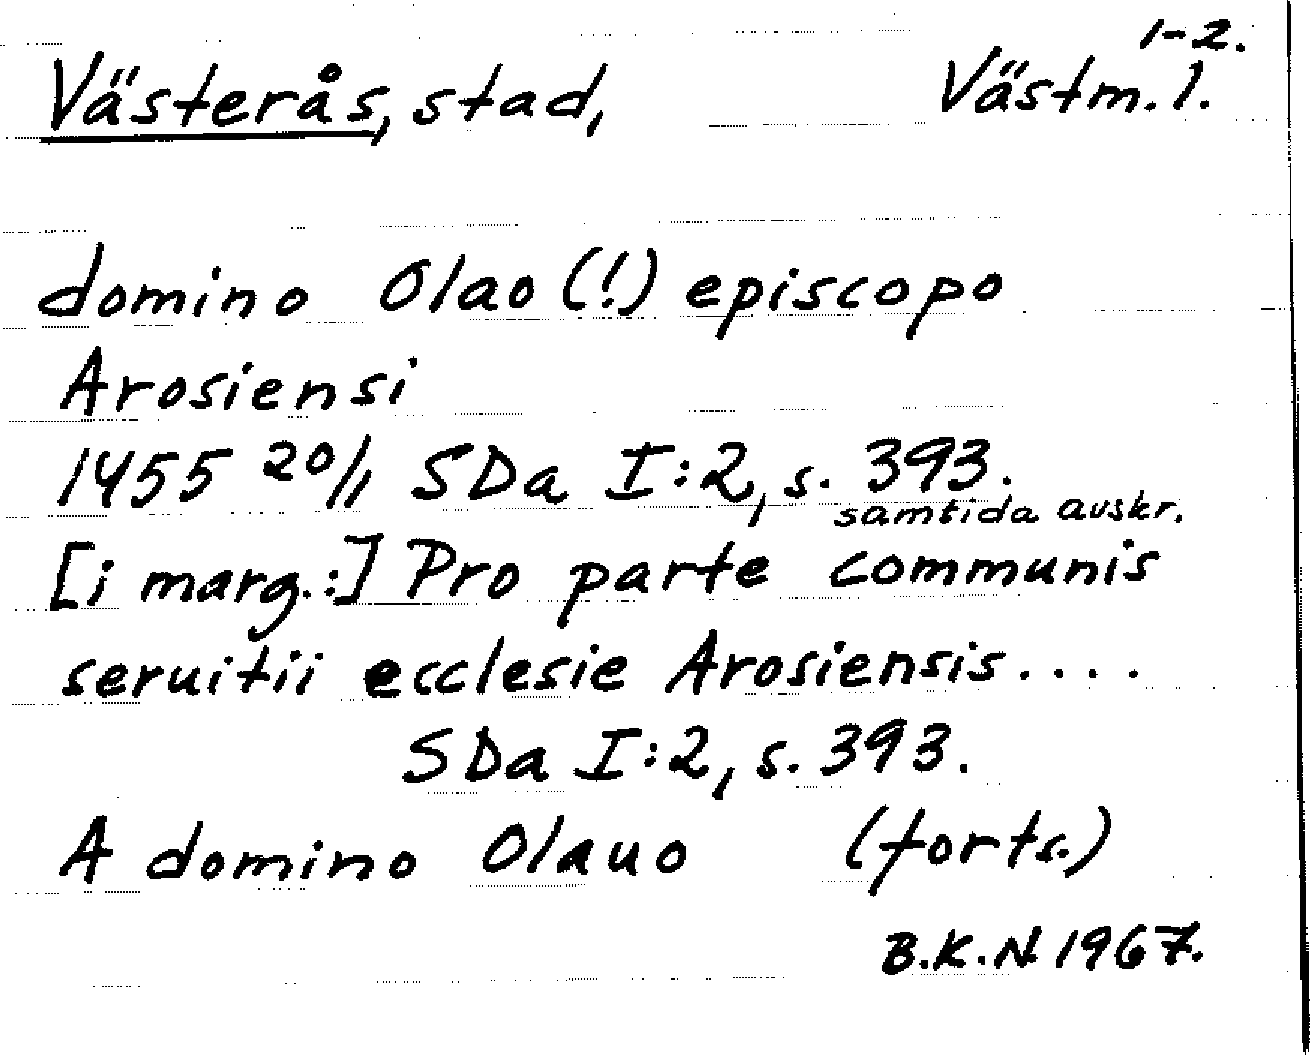 1-2.
Västerås, stad, Västm. l.
domino Olao (!) episcopo
Arosiensi
1455 20/1 SDa I:2, s. 393.
samtida avskr.
[i marg.:] Pro parte communis
seruitii ecclesie Arosiensis....
SDa I:2, s. 393.
A domino Olauo (forts.)
B.K.N 1967.